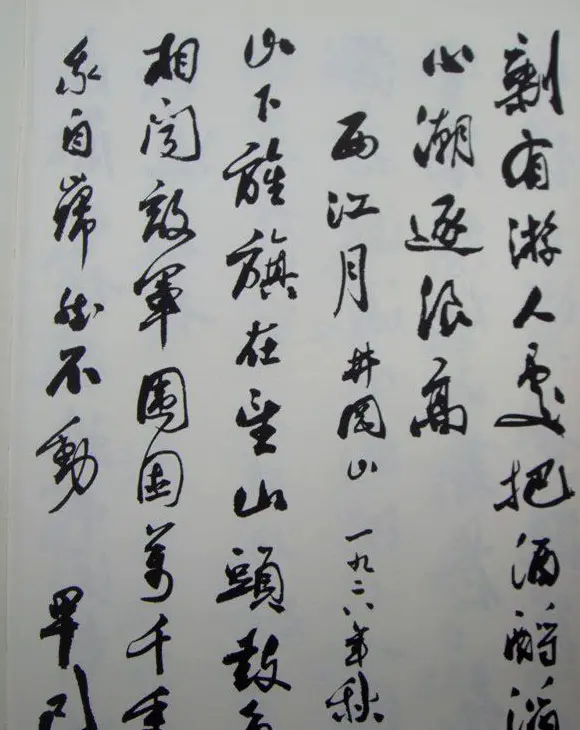 剩有游人處把酒酹滔
心潮逐浪高
西江月 井岡山 一九二八年秋
山下旌旗在望山頭鼓角
相聞敵軍圍困萬千重
我自巋然不動 早已